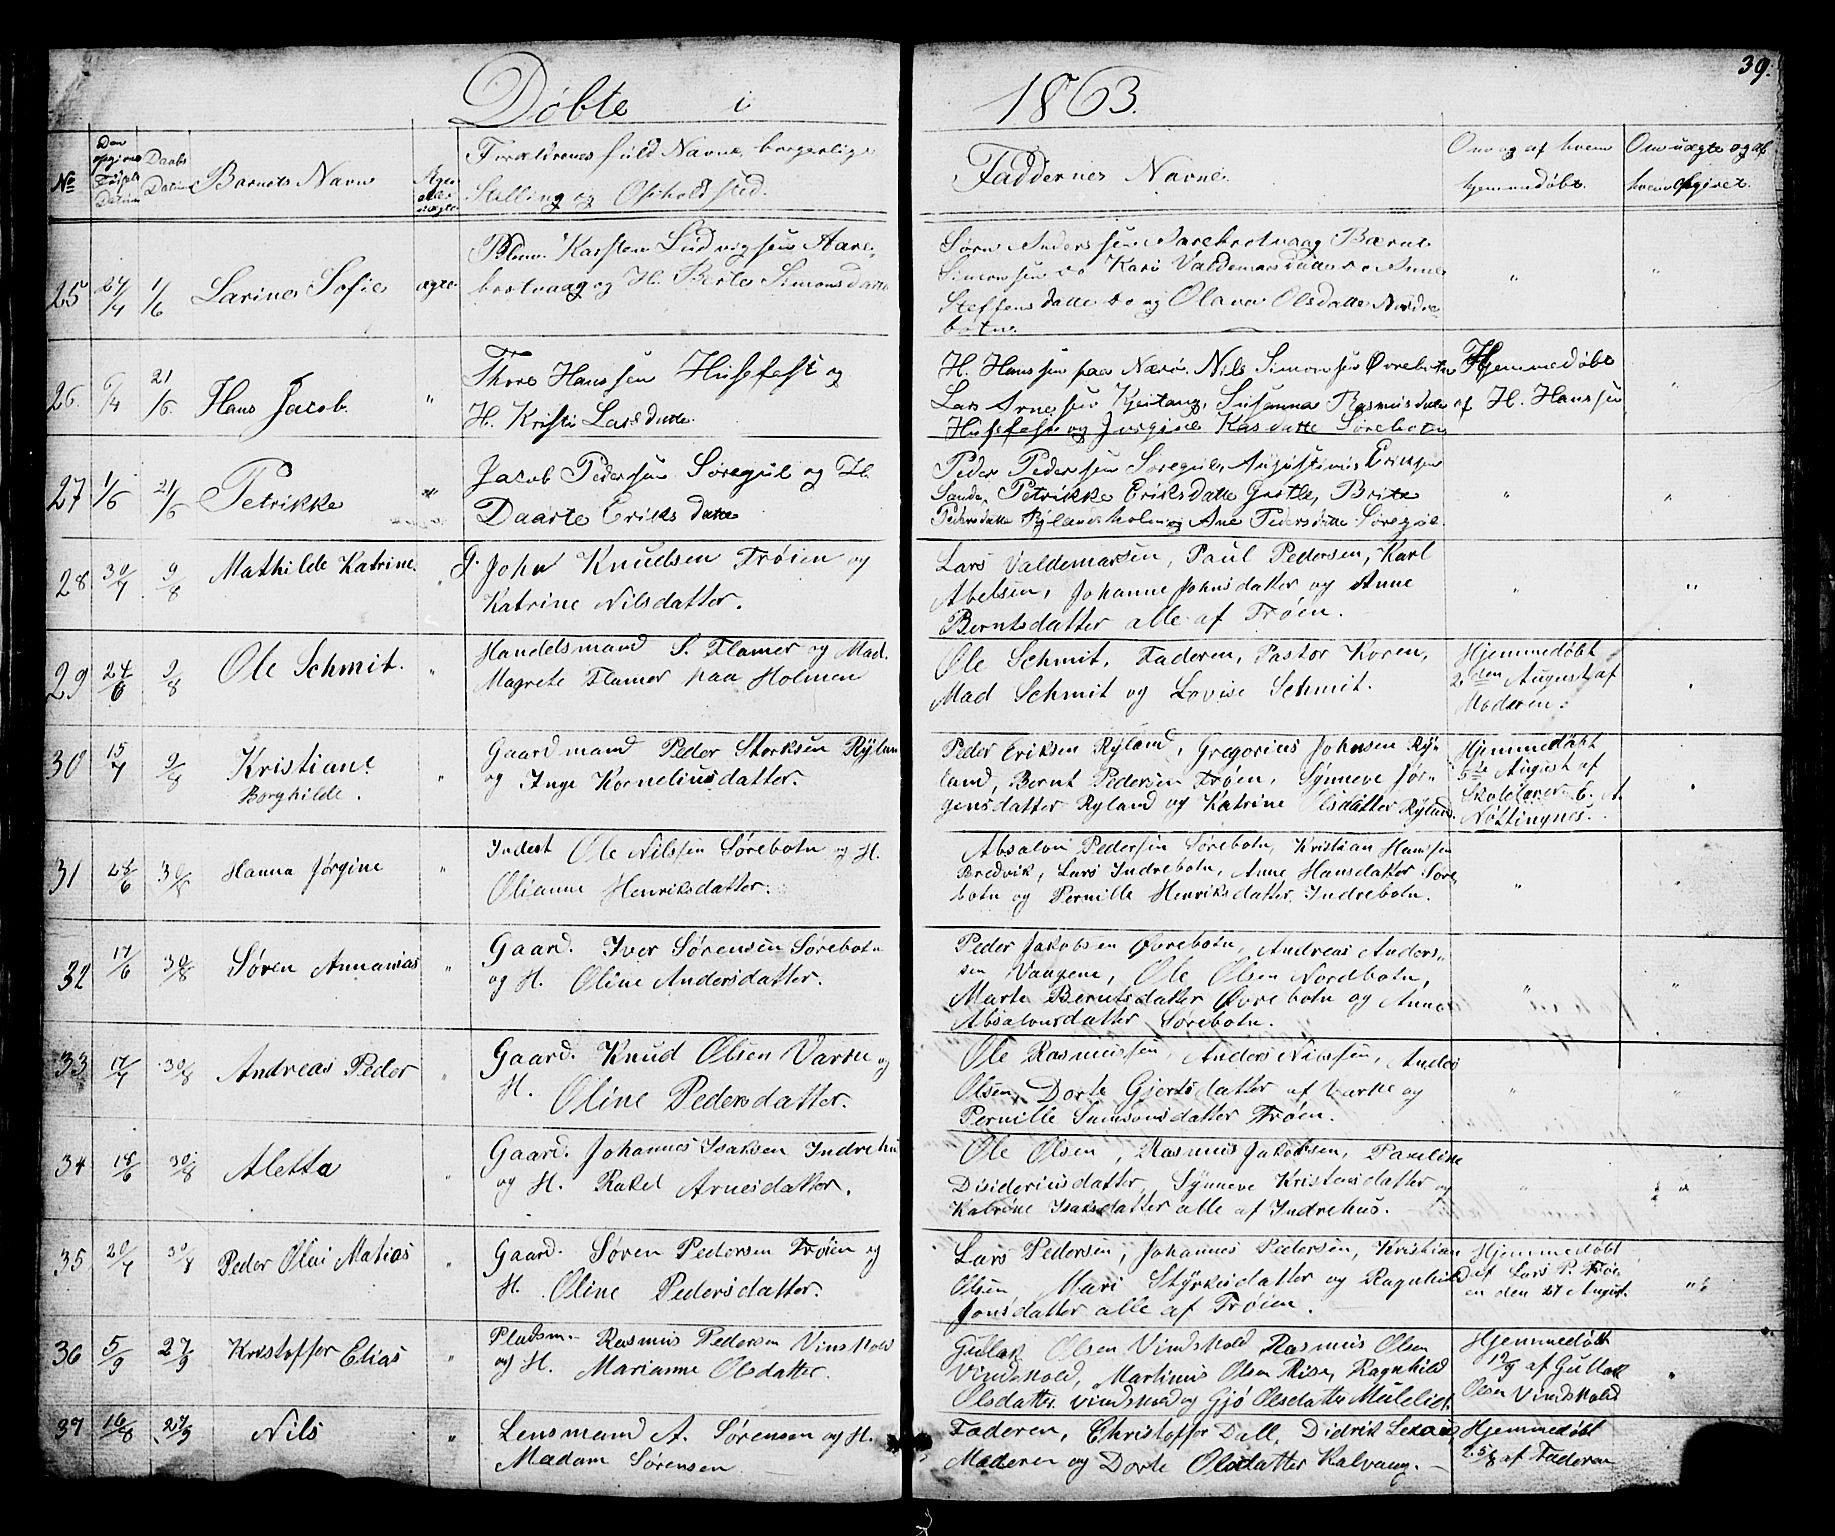 39.
Døbte i 1863.
No
Den opgivne Fødsels Datum
Daabs Datum
Barnets Navn
Ægte eller uægte
Forældrenes fuld Navne, borgerlige
Stilling og Opholdsted.
Faddernes Navne.
Om og af hvem
hjemmedøbt.
Om uægte og af
hvem opgivet.
25 27/4 1/6 Larine Sofie ægte
Karsten Ludvigsen Aare-
brotvaag og H. Berte Simonsdatte
Søren Anderssen Aarebrotvaag Bærne
Simonsen do Kari Valdemarsdatte do Anne
Steffensdatte do og Olava Olsdatte Nordre
botn.
26. 6/4 21/6. Hans Jacob. "
Thore Hanssen Husefest og
H. Kristi Larsdatte.
H. Hanssen paa Nærø. Nils Simonsen Øvrebotn
Lars Arnesen Kjeitang, Susanna Rasmusdatte
Husefest og Jørgine Larsdatte Sørebotn
Hjemmedøbt
af H. Hanssen
27 1/6 21/6 Petrikke "
Jacob Pedersen Søregul og H.
Daarte Eriksdatte
Peder Pedersen Søregul, Augustinus Eriksen
Sande, Petrikke Eriksdatte Grotle, Brite
Pedersdatte Rylandsholm og Ane Pedersdatte Søregul
28 30/7 9/8 Mathilde Katrine. "
G. John Knudsen Trøien og
Katrine Nilsdatter.
Lars Valdemarsen, Paul Pedersen, Karl
Abelsen, Johanne Johnsdatter og Anne
Berntsdatter alle af Trøien.
29 24/6 9/8 Ole Schmit. "
Handelsmand S. Flamer og Mad.
Magrete Flamer paa Holmen
Ole Schmit, Faderen, Pastor Koren,
Mad Schmit og Lovise Schmit.
Hjemmedøbt
2den August af
Moderen.
30 15/7 9/8 Kristiane
Borghilde. "
Gaardmand Peder Storksen Rylan
og Inge Korneliusdatter.
Peder Eriksen Ryland, Gregorius Johnsen Ry-
land, Bernt Pedersen Trøen, Synneve Jør-
gensdatter Ryland og Katrine Olsdatter Ryland.
Hjemmedøbt
5te August af
Skolelærer E. A.
Nøttingnes.
31 28/6 30/8 Hanna Jørgine "
Inderst Ole Nilssen Sørebotn og H.
Olianne Henriksdatter.
Absalon Pedersen Sørebotn, Kristian Hanssen
Bredvik, Lars Indrebotn, Anne Hansdatter Søre
botn og Pernille Henriksdatter Indrebotn.
32 17/6 30/8 Søren Annanias "
Gaard. Iver Sørensen Sørebotn
og H. Oline Andersdatter.
Peder Jakobsen Øvrebotn, Andreas Anders-
sen Vaagene, Ole Olsen Nordbotn,
Marte Berntsdatter Øvrebotn og Anne
Absalonsdatter Sørebotn.
33 17/7 30/8 Andreas Peder "
Gaard. Knud Olsen Varøe og
H. Oline Pedersdatter.
Ole Rasmussen, Anders Nilssen, Anders
Olsen, Dorte Gjertsdatter af Varøe og
Pernille Samsonsdatter Trøen.
34 18/6 30/8 Aletta "
Gaard. Johannes Isaksen Indrehu
og H. Rakel Arnesdatter.
Ole Olsen, Rasmus Jakobsen, Pauline
Disideriusdatter, Synneve Kristensdatter og
Katrine Isaksdatter alle af Indrehus.
35 20/7 30/8 Peder Olai Matias "
Gaard. Søren Pedersen Trøien og
H. Oline Pedersdatter.
Lars Pedersen, Johannes Pedersen, Kristian
Olsen Mari Styrkesdatter og Ragnhild
Jonsdatter alle af Trøien.
Hjemmedøbt
af Lars P. Trøi
en den 27 August.
36 5/9 27/9 Kristoffer Elias "
Pladsm. Rasmus Pedersen Vindskold
og H. Marianne Olsdatter.
Gullak Olsen Vindskold Rasmus Olsen
Vindskold, Martinus Olsen Rise, Ragnhild
Olsdatter Vindskold og Gjø Olsdatter Mulelid.
Hjemmedøbt
12/9 af Gullak
Olsen Vindskold
37 16/8 27/9 Nils "
Lensmand A. Sørensen og H.
Madam Sørensen
Faderen, Christoffer Dall, Didrik Lexau,
Moderen og Dorte Olsdatter Kalvaag.
Hjemmedøbt
25/8 af Faderen